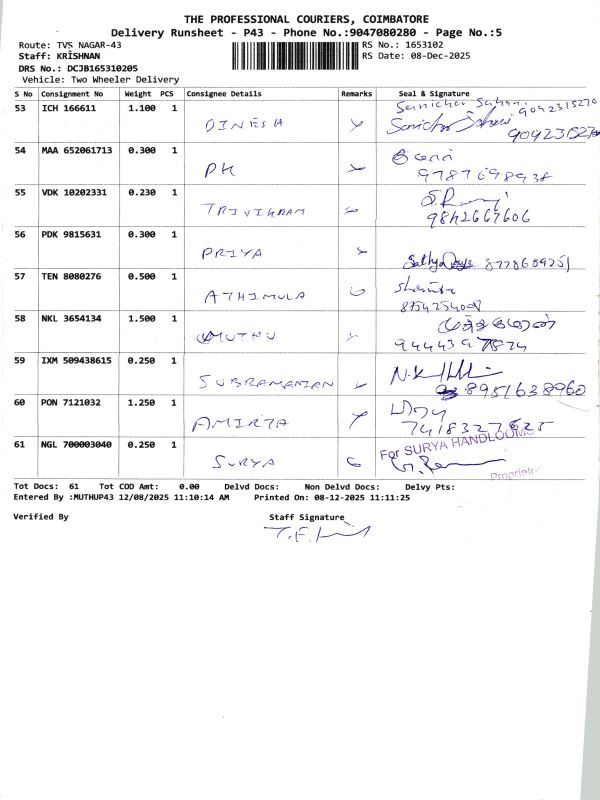 THE PROFESSIONAL COURIERS, COIMBATORE
Delivery Runsheet - P43 - Phone No.:9047080280 - Page No.:5
Route: TVS NAGAR-43 RS No.: 1653102
Staff: KRISHNAN RS Date: 08-Dec-2025
DRS No.: DCJB165310205
Vehicle: Two Wheeler Delivery
S No Consignment No Weight PCS Consignee Details Remarks Seal & Signature
53 ICH 166611 1.100 1 DINESH Sanichar Sahani 9092315270
Sanichar Sahani
9092315270
54 MAA 652061713 0.300 1 PK
9787698938
55 VDK 10202331 0.230 1 TRIVIKRAM
9842667606
56 PDK 9815631 0.300 1 PRIYA
Sathya 8778609251
57 TEN 8080276 0.500 1 ATHIMULA
58 NKL 3654134 1.500 1 MUTHU
9444397874
59 IXM 509438615 0.250 1 SUBRAMANIAN
8951638960
60 PON 7121032 1.250 1 AMIRTA
7418327625
61 NGL 700003040 0.250 1 SURYA For SURYA HANDLOOMS
Proprietor
Tot Docs: 61 Tot COD Amt: 0.00 Delvd Docs: Non Delvd Docs: Delvy Pts:
Entered By :MUTHUP43 12/08/2025 11:10:14 AM Printed On: 08-12-2025 11:11:25
Verified By Staff Signature